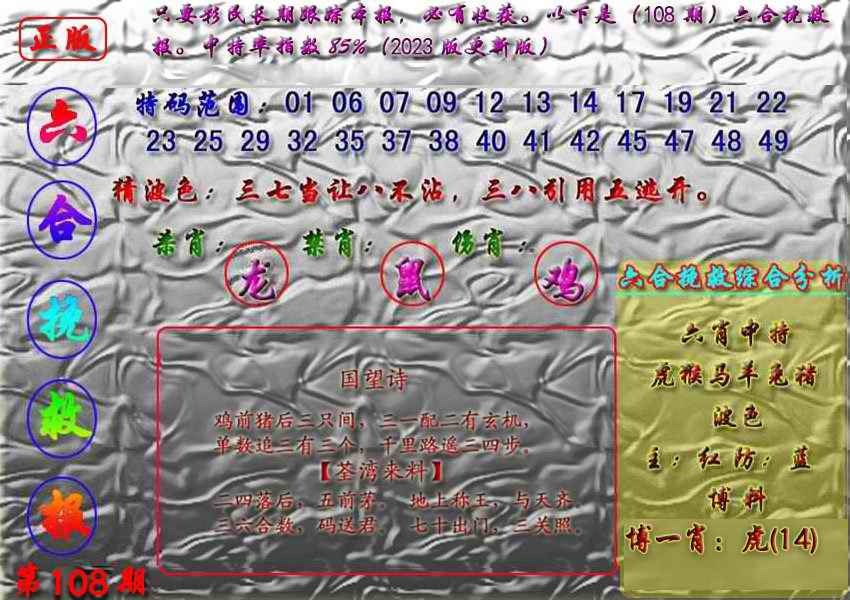 正版
只要彩民长期跟踪本报，必有收获。以下是（108 期）六合挽救
报。中特率指数 85%（2023 版更新版）
六
合
挽
救
报
第108期
特码范围：01 06 07 09 12 13 14 17 19 21 22
23 25 29 32 35 37 38 40 41 42 45 47 48 49
精波色：三七当让八不沾，三八引用五逃开。
杀肖：龙 禁肖：鼠 伤肖：鸡
国望诗
鸡前猪后三只间，三一配二有玄机，
单数追二有三个，千里路遥二四步。
【荃湾来料】
二四落后，五前茅． 地上称王，与天齐
三六合救，码送君． 七十出门，三关照．
六合挽救综合分析
六肖中特
虎猴马羊兔猪
波色
主：红 防：蓝
博料
博一肖：虎(14)